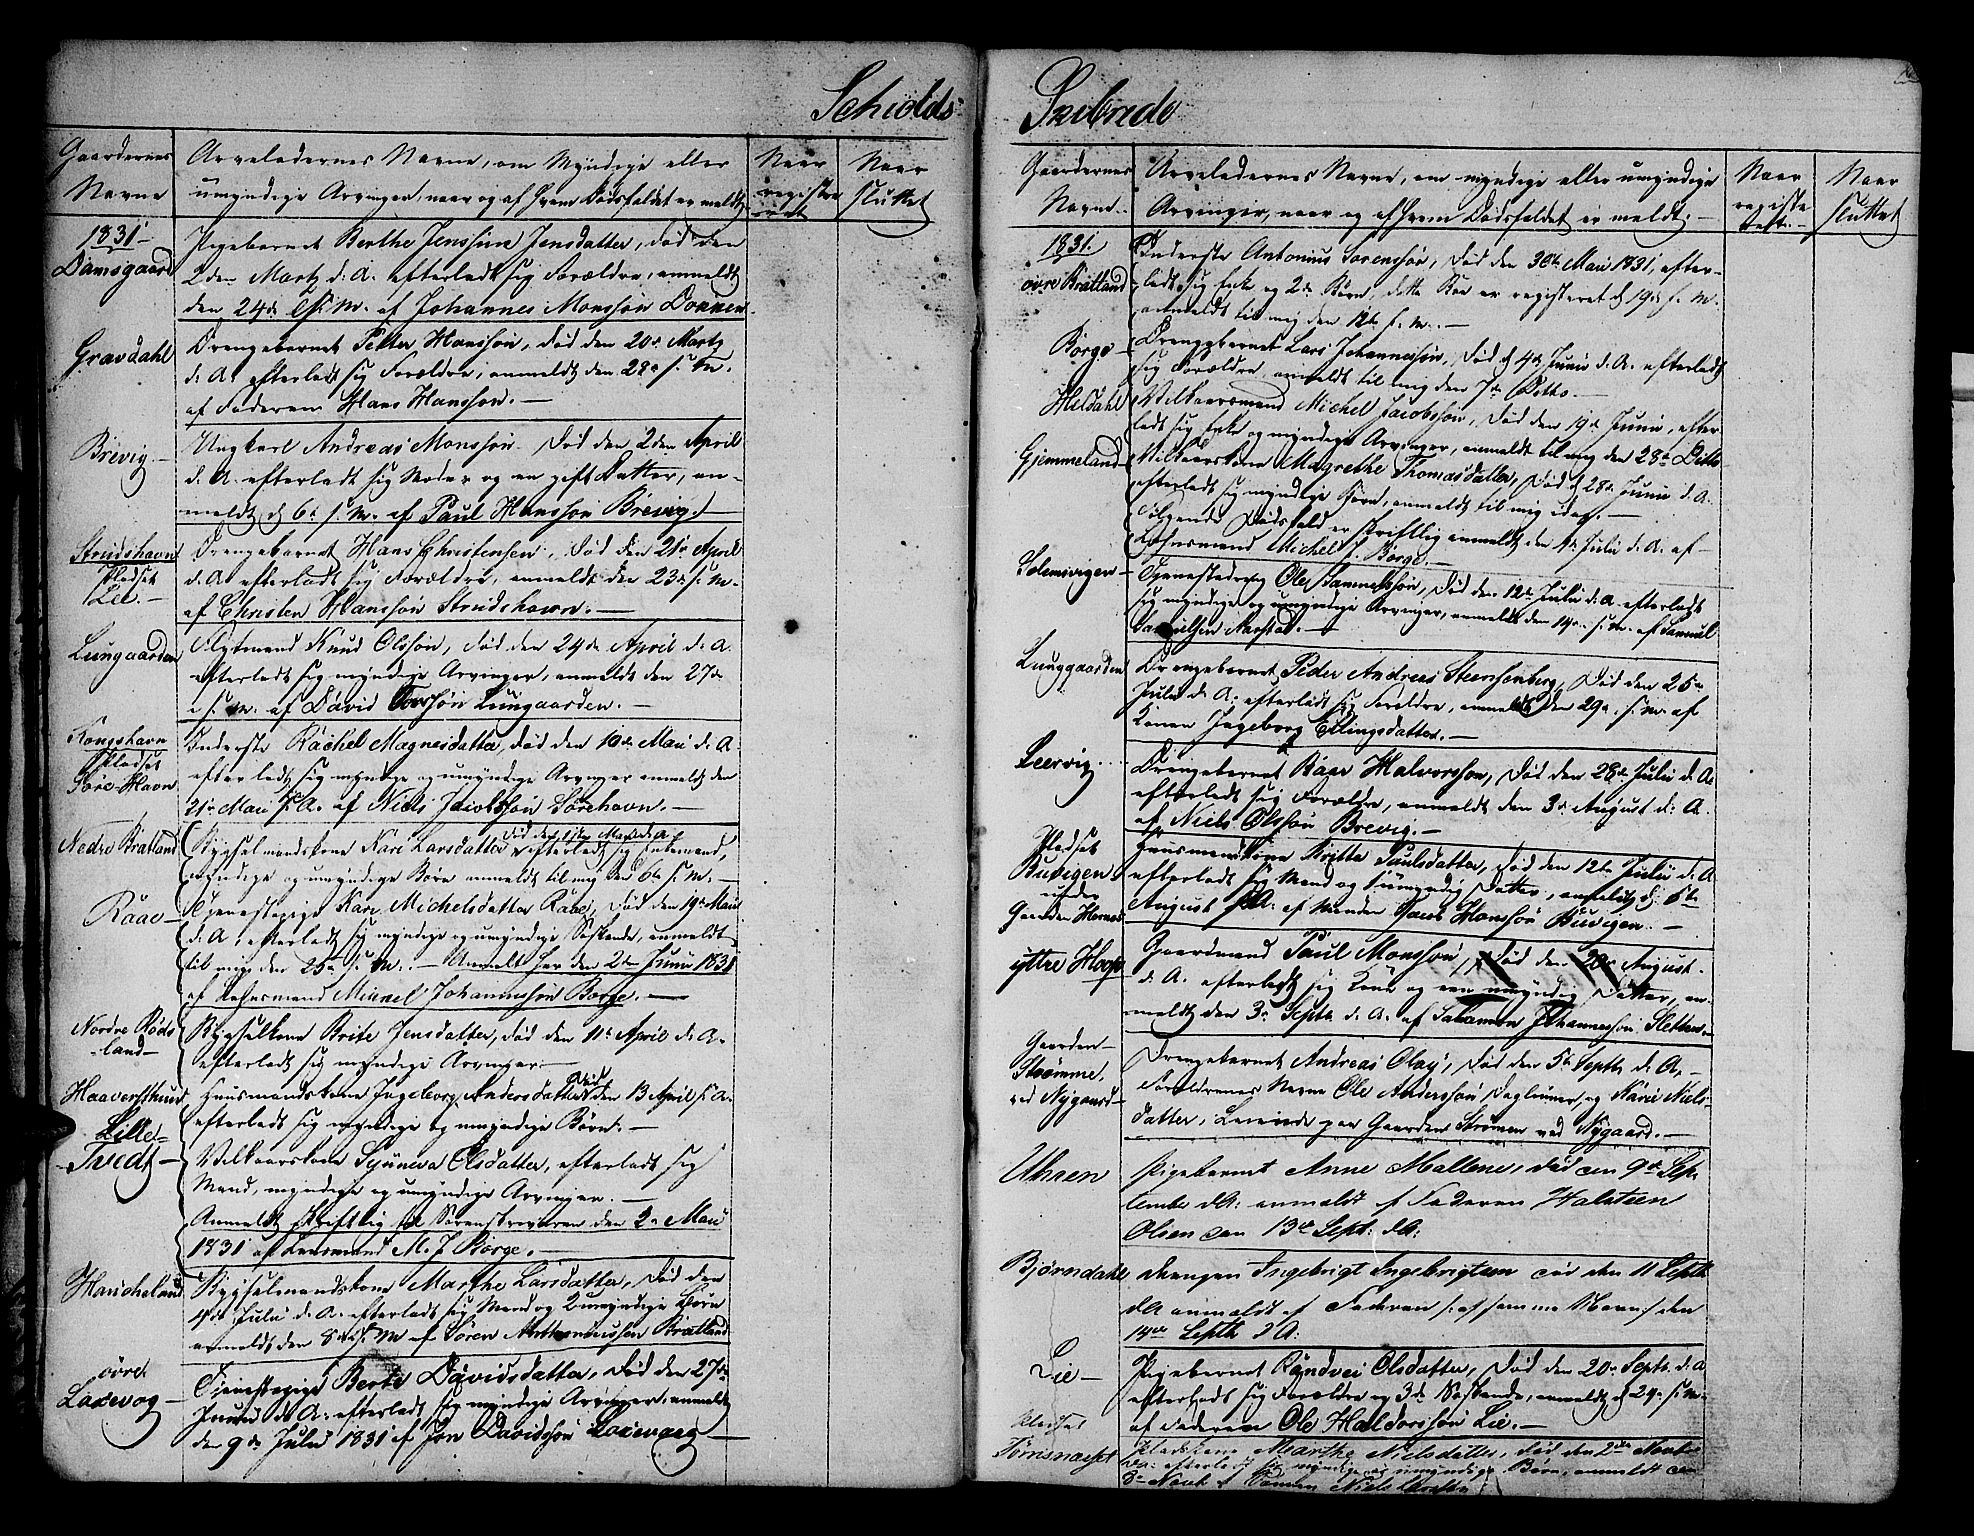 Schiolds
Gaardernes
Navne
Arveladernes Navne, om Myndige eller
umyndige Arvinger, naar og af hvem Dødsfaldet er meldt,
Naar
registre
ret
Naar
sluttet
1831
Damsgaard
Pigebarnet Berthe Jenssine Jensdatter, død den
2den Martz d. A. efterladt sig Forældre, anmeldt
den 24de M. af Johannes Monssøn Donnen
Gravdahl
Drengebarnet Petter Hanssøn, død den 20de Martz
d. A. efterladt sig Forældre, anmeldt den 28de s. M.
af Faderen Hans Hanssøn.
Brevig
Ungkarl Andreas Monssøn død den 2den April
d. A. efterladt sig Moder og en gift Datter, an-
meldt d 6te s. M. af Paul Hanssøn Brevig.
Strudshavn
Pladset
Lie.
Drengebarnet Hans Christensen, død den 21de April
d. A. efterladt sig Forældre, anmeldt den 23de s. M.
af Christen Hanssøn Strudshavn.
Lungaarden
Knud Olssøn, død den 24de April d. A.
efterladt sig myndige Arvinger, anmeldt den 27de
s. M. af David Lungaarden.
Kongshavn
Pladset
Søre-Havn
Inderste Rachel Magnesdatter, død den 10de Mai d. A.
efterladt sig myndige og umyndige Arvinger anmeldt den
21de Mai d. A. af Niels Jacobssøn Sørehavn.
Nedre Bratland
Bygselmandskone Kari Larsdatter død den 1ste Mai d. A. efterladt sig Enkemand,
myndige og umyndige Børn anmeldt til mig den 6te s. M.
Raae
Tjenestepige Kari Michelsdatter Raae, død den 19de Mai
d. A. efterladt sig myndige og umyndige Søskende, anmeldt
til mig den 25de s. M. Anmeldt her den 2den Junii 1831
af Lehnsmand Michel Johannessøn Borge.
Nordre Røds
land
Bygselkone Brite Jensdatter, død den 11te April d. A.
efterladt sig myndige Arvinger.
Haaversthuus
Huusmandskone Ingeborg Andersdatter død den 13 April d. A.
efterladt sig myndige og umyndige Børn.
Lille
Tvedt
Velkaarskone Synneva Olsdatter, efterladt sig
Mand, myndige og umyndige Arvinger.
Anmeldt skriftlig til Sorenskriveren den 2de Mai
1831 af Lensmand M. J. Borge.
Haucheland
Bygselmandskone Marthe Larsdatter, død den
4de Julii d. A. efterladt sig Mand og 2 umyndige Børn
anmeldt den 8de s. M. af Søren Anthoniussen Bratland
øvre
Laxevog
Tjenestepige Berte Davidsdatter, død den 27de
Junii d. A. efterladt sig myndige Arvinger, anmeldt
den 9de Julii 1831 af Jon Davidssøn Laxevaag
Skibrede
Gaardernes
Navne
Arveladernes Navne, om myndige eller umyndige
Arvinger, naar og af hvem Dødsfaldet er meldt.
Naar
registre
Naar
sluttet
1831.
øvre Bratland
Inderste Antonius Sørenssøn, død den 30te Mai 1831, efter-
ladt sig Enke og 2de Børn, dette Boe er registeret d 19de s. M.
anmeldt til mig den 12te s. M.
Borge
Drengebarnet Lars Johannessøn, død d 4de Junii d. A. efterladt
sig Forældre, anmeldt til mig den 7de Ditto.
Heldahl
Velkaarsmand Michel Jacobssøn, død den 19de Junii, efter
ladt sig Enke og myndige Arvinger, anmeldt til mig den 28de Ditto
Gjemmeland
Velkaarskone Magrethe Thomasdatter, død d 28de Junii d. A.
efterladt sig myndige Børn, anmeldt til mig idag.
Følgende Dødsfald er skriftlig anmeldt den 4de Julii d. A. af
Lehnsmand Michel J. Borge.
Solemsvigen
Tjenestedreng Ole Sammelssøn, død den 12te Julii d. A. efterladt
sig myndige og umyndige Arvinger, anmeldt den 14de s. M. af Samuel
Lunggaarden
Drengebarnet Peder Andreas Steensenberg, død den 25de
Julii d. A. efterladt sig Forældre, anmeldt den 29de s. M. af
Konen Ingeborg Ellingsdatter.
Leervig
Drengebarnet Baar Halvorssøn, død den 28de Julii d. A.
efterladt sig Forældre, anmeldt den 3de August d. A.
af Niels Olssøn Brevig.
Pladset
Buvigen
under
Gaarden Hornes
Huusmandskone Britta Paulsdatter, død den 12te Julii d. A
efterladt sig Mand og 1 umyndig Datter, anmeldt d. 6te
August d. A. af Manden Jacob Hanssøn Buvigen.
yttre Hop
Gaardmand Paul Monssøn, død den 20de August
d. A. efterladt sig Kone og een umyndig Datter, an-
meldt den 3de Septb. d. A. af Salamon Johannessøn Slethen
Gaarden
Strømme,
ved Nygaard
Drengebarnet Andreas Olay, død den 5te Septb. d. A.
Forældrenes Navne Ole Anderssøn Dagleiner, og Kari Niels-
datter, boende paa Gaarden Strømen ved Nygaard.
Uhren
Pigebarnet Anne Mallene, død den 9de Sep-
tember d. A. anmeldt af Faderen Halstein
Olsen den 13de Sept. d. A.
Bjørndahl
drengen Ingebrigt Ingebrigtsen død den 11 Septb
d. A anmeldt af Faderen /: af samme Navn :/ den
14de Septb d. A.
Lie
Pigebarnet Randvei Olsdatter, død den 20de Septb. d. A
efterladt sig Forældre og 3de Søskende, anmeldt d 24de s. M.
af Faderen Ole Haldorssøn Lie.
Pladset
Marthe Nielsdatter, død den 2den
efterladt sig myndige og umyndige Børn, anmeldt den
3de